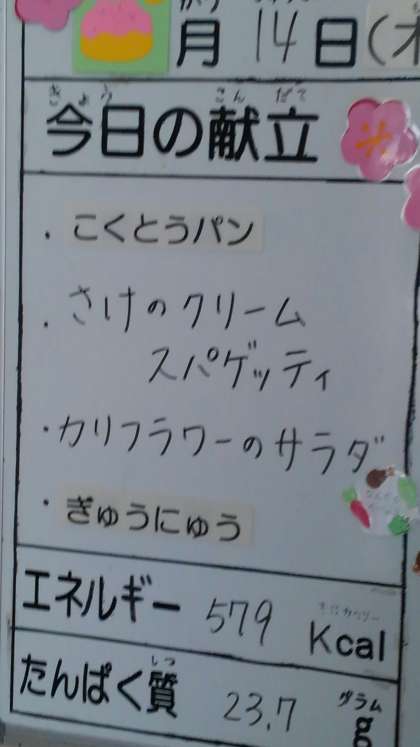 月 14 日 (木
きょう こんだて
今日の献立
・こくとうパン
・さけのクリーム
スパゲッティ
・カリフラワーのサラダ
・ぎゅうにゅう
エネルギー 579 Kcal
しつ グラム
たんぱく質 23.7 g